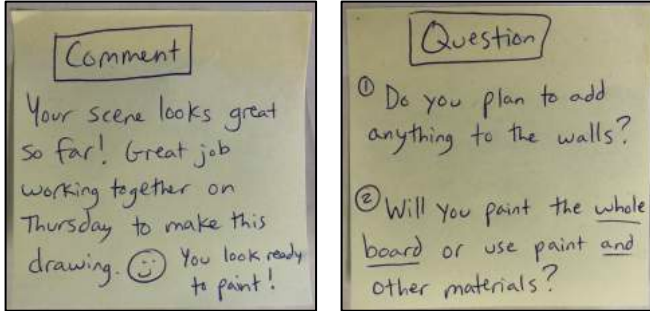 Comment
Your scene looks great
so far! Great job
working together on
Thursday to make this
drawing. You look ready
to paint!
Question
① Do you plan to add
anything to the walls?
② Will you paint the whole
board or use paint and
other materials?